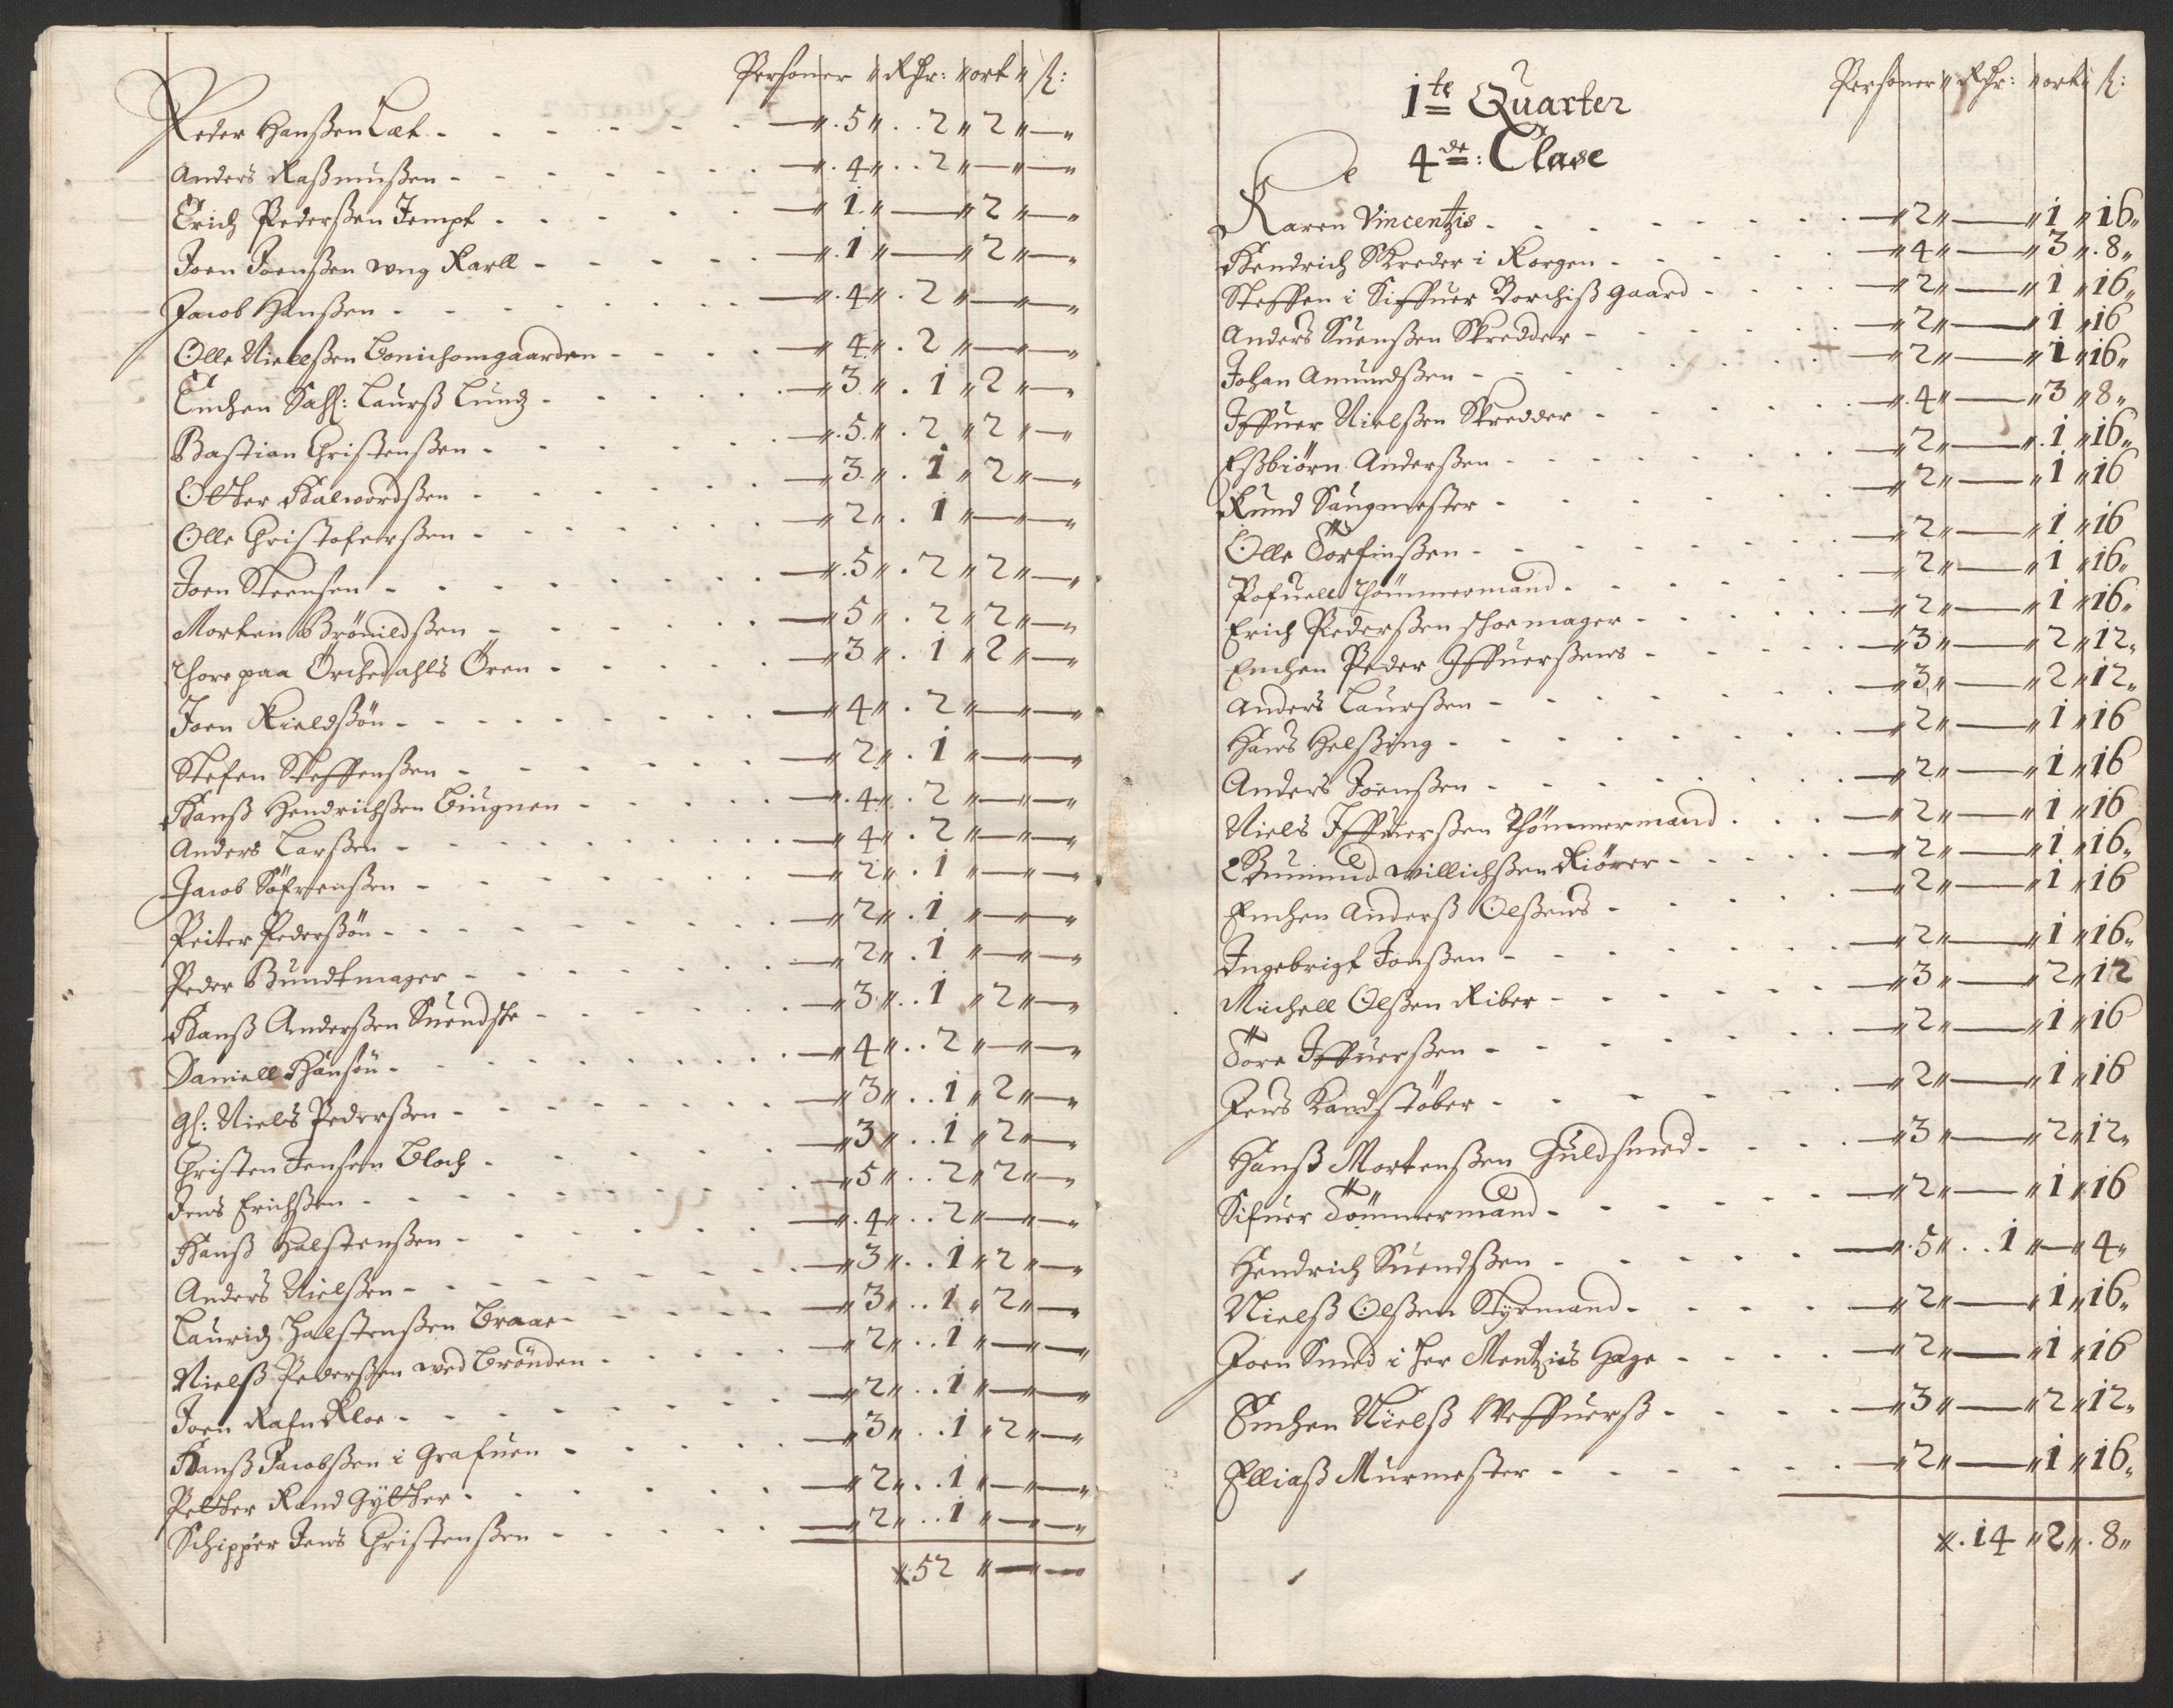 Personer Rdr: ort ß:
Peder Hanßen Lat - 5 2 2 —
Anders Raßmußen - 4 2 — —
Erich Pederßen Jempt - 1 — 2 —
Joen Joenßen ung Karll - 1 — 2 —
Jacob Hanßen - 4 2 — —
Olle Nielßen - 4 2 — —
Enchen Sahl: Laurß Lund - 3 1 2 —
Bastian Christenßen - 5 2 2 —
Otther Halwordßen - 3 1 2 —
Olle Christoferßen - 2 1 — —
Joen Steensen - 5 2 2 —
Morten Brönildßen - 5 2 2 —
Thore paa Örchedahls Ören - 3 1 2 —
Joen Kieldßön - 4 2 — —
Stefen Steffenßen - 2 1 — —
Hanß Hendrichßen Biugnen - 4 2 — —
Anders Larßen - 4 2 — —
Jacob Söfrenßen - 2 1 — —
Peiter Pederßön - 2 1 — —
Peder Bundtmager - 2 1 — —
Hanß Anderßen Suendske - 3 1 2 —
Daniell Hansön - 4 2 — —
Gl: Niels Pederßen - 3 1 2 —
Christen Jensen Bloch - 3 1 2 —
Jens Erichßen - 5 2 2 —
Hanß Halstenßen - 4 2 — —
Anders Nielßen - 3 1 2 —
Lauridz Halstenßen Braae - 3 1 2 —
Nielß Pederßen ved Brönden - 2 1 — —
Joen Rafn Kloe - 2 1 — —
Hanß Jacobßen i Grafuen - 3 1 2 —
Petther Kand Gytther - 2 1 — —
Schipper Jens Christenßen - 2 1 — —
52 — —
Personer Rdr: ort ß:
1te Quarter
4de: Clase
Karen Vincentzis - 2 — 1 16
Hendrich Skreder i Korgen - 4 — 3 8
Steffen i Siffuer Borchiß gaard - 2 — 1 16
Anders Suenßen Skredder - 2 — 1 16
Johan Amundßen - 2 — 1 16
Iffuer Nielßen Skredder - 4 — 3 8
Eßbiörn Anderßen - 2 — 1 16
Knud Saugmester - 2 — 1 16
Olle Torfinßen - 2 — 1 16
Pofuell Thömmermand - 2 — 1 16
Erich Pederßen schoemager - 2 — 1 16
Enchen Peder Iffuerßens - 3 — 2 12
Anders Laurßen - 3 — 2 12
Hans Helßing - 2 — 1 16
Anders Joenßen - 2 — 1 16
Niels Iffuerßen Thömmermand - 2 — 1 16
Gunnmud Willichßen Kiörer - 2 — 1 16
Enchen Anderß Olßens - 2 — 1 16
Ingebrigt Jonßen - 2 — 1 16
Michell Olßen Riber - 3 — 2 12
Tore Iffuerßen - 2 — 1 16
Jens Kandstöber - 2 — 1 16
Hanß Mortenßen Guldsmed - 3 — 2 12
Sifuer Tömmermand - 2 — 1 16
Hendrich Suendßen - 5 1 — 4
Nielß Olßen Styrmand - 2 — 1 16
Joen Smed i Her Mentzis Hage - 2 — 1 16
Enchen Nielß Weffuerß - 3 — 2 12
Elliaß Murmester - 2 — 1 16
14 2 8